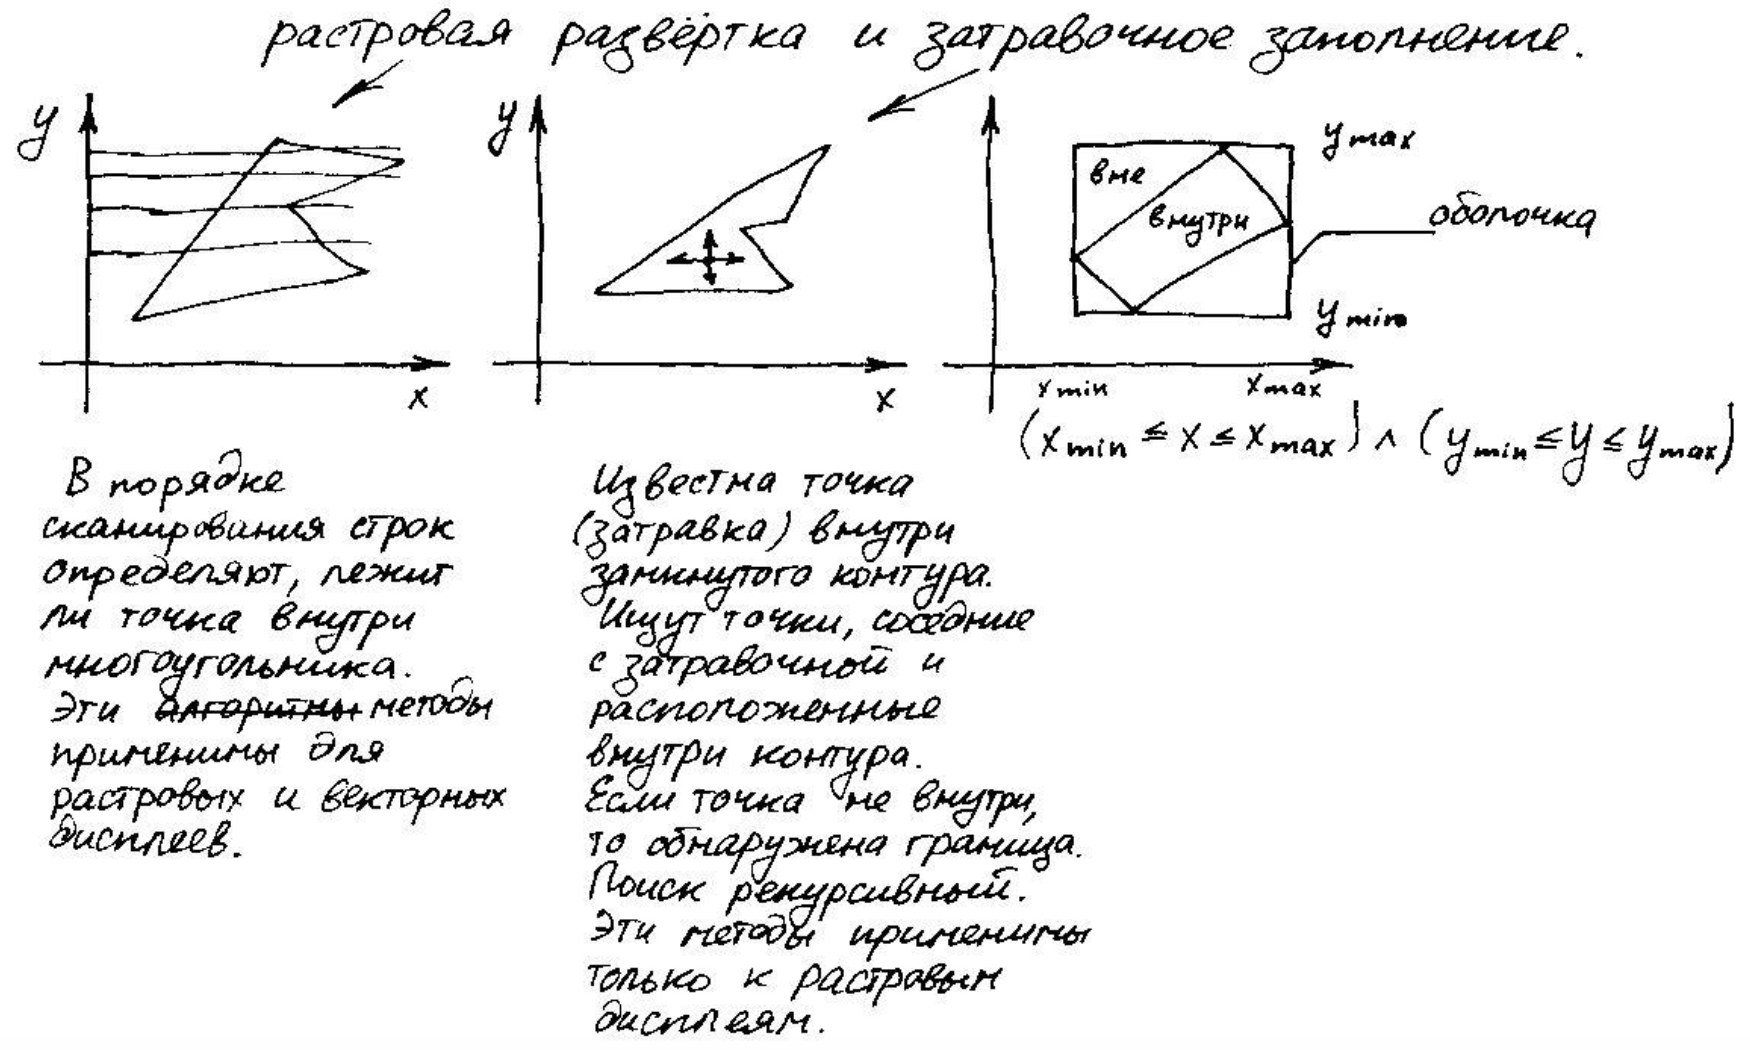 растровая развёртка и затравочное заполнение.
y
x
y
x
вне
внутри
y max
оболочка
y min
x min
x max
(x min ≤ x ≤ x max) ∧ (y min ≤ y ≤ y max)
В порядке
сканирования строк
определяют, лежит
ли точка внутри
многоугольника.
Эти алгоритмы методы
применимы для
растровых и векторных
дисплеев.
Известна точка
(затравка) внутри
замкнутого контура.
Ищут точки, соседние
с затравочной и
расположенные
внутри контура.
Если точка не внутри,
то обнаружена граница.
Поиск рекурсивный.
Эти методы применимы
только к растровым
дисплеям.